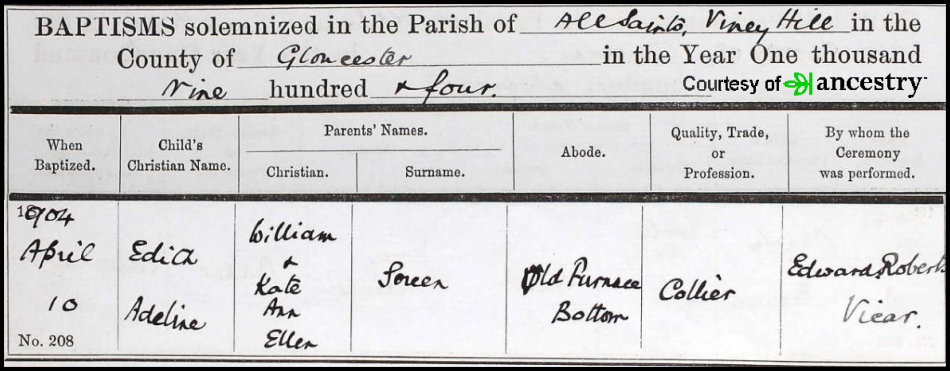 BAPTISMS solemnized in the Parish of All Saints, Viney Hill in the
County of Gloucester in the Year One thousand
Nine hundred & four.
Courtesy of ancestry
When Baptized.
Child's Christian Name.
Parents' Names.
Christian.
Surname.
Abode.
Quality, Trade, or Profession.
By whom the Ceremony was performed.
1904
April
10
No. 208
Edith
Adeline
William
&
Kate
Ann
Ellen
Old Furnace
Bottom
Collier
Edward Robert
Vicar.